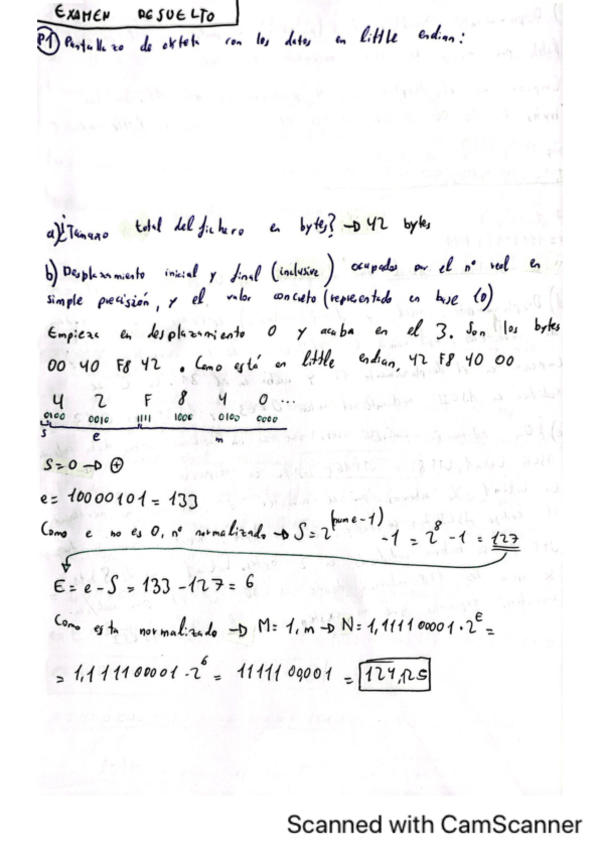 EXAMEN RESUELTO
P1) Pantallazo de okteta con los datos en little endian:
a) ¿Tamaño total del fichero en bytes? → 42 bytes
b) Desplazamiento inicial y final (inclusive) ocupados por el nº real en
simple precisión, y el valor concreto (representado en base 10)
Empieza en desplazamiento 0 y acaba en el 3. Son los bytes
00 40 F8 42. Como está en little endian, 42 F8 40 00
4 2 F 8 4 0 ...
0100 0010 1111 1000 0100 0000
s e m
S=0 → ⊕
e= 10000101 = 133
Como e no es 0, nº normalizado → S=2^(num e-1) -1 = 2^8 -1 = 127
E= e-S = 133-127= 6
Como esta normalizado → M= 1,m → N= 1,1111100001·2^E =
= 1,1111100001·2^6 = 1111100001 = 124,125
Scanned with CamScanner